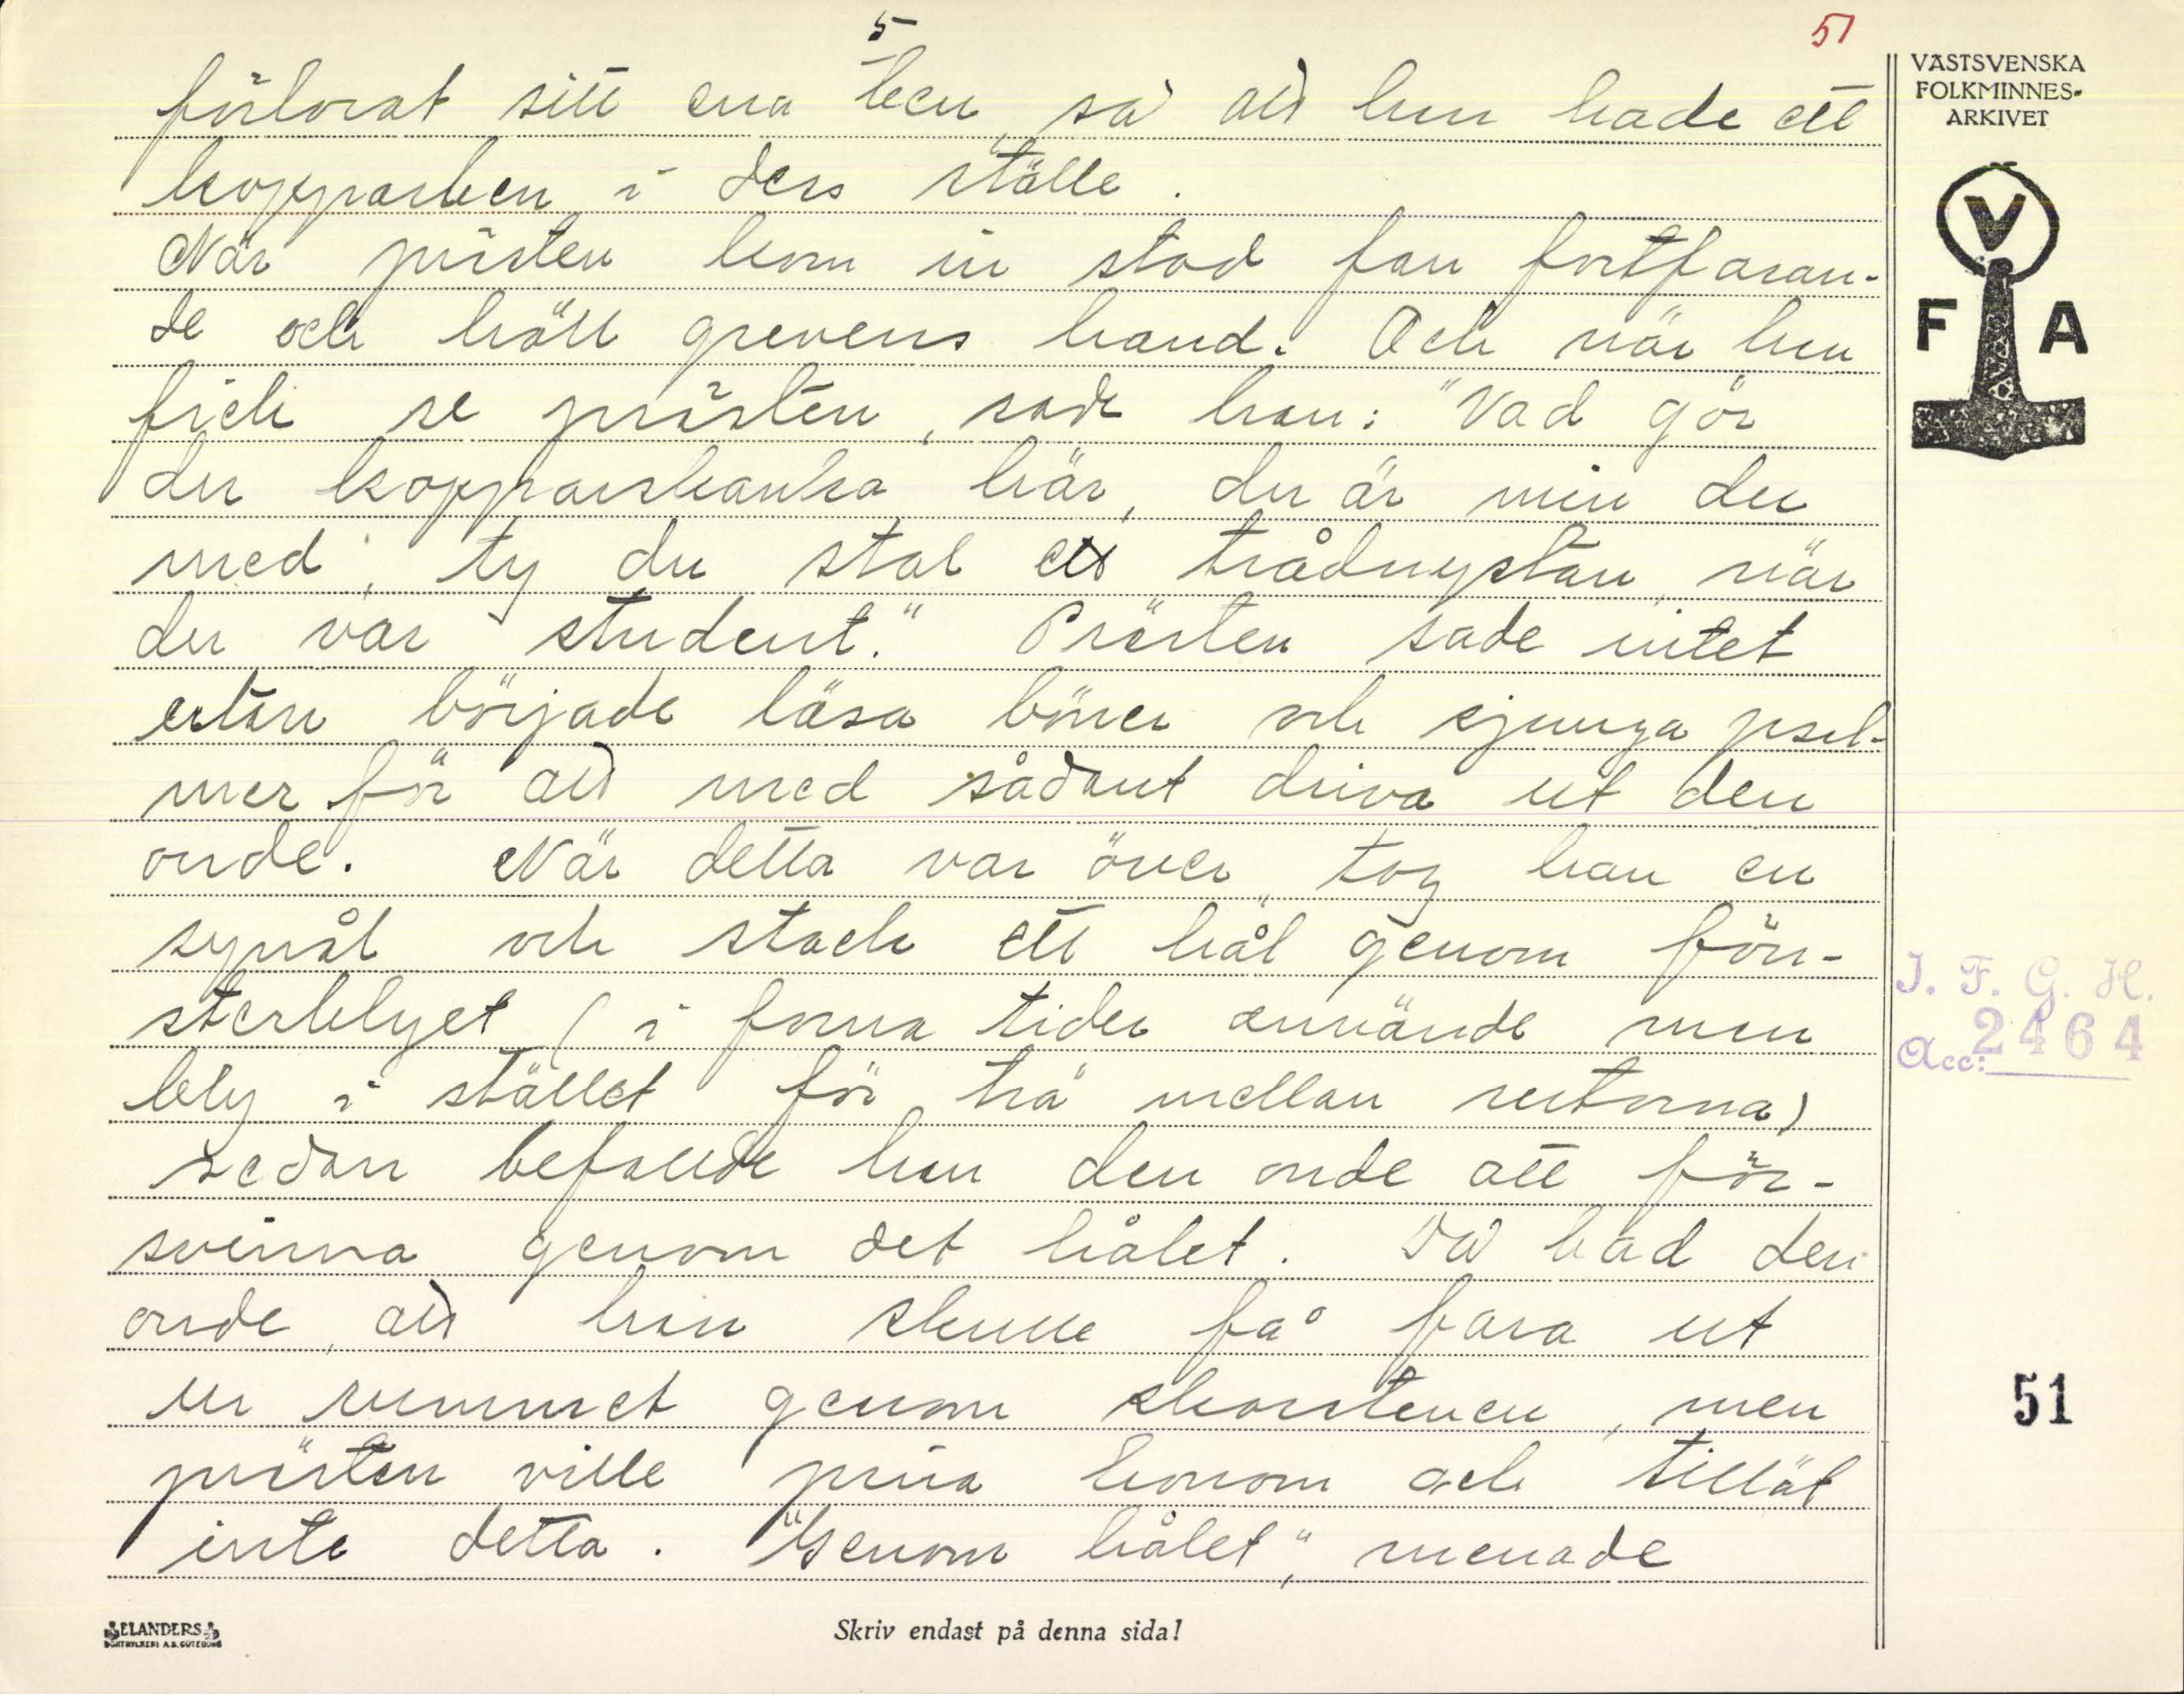 5
51
förlorat sitt ena ben, så att han hade ett
kopparben i dess ställe.
När prästen kom in stod fan fortfaran-
de och höll grevens hand. Och när han
fick se prästen, sade han: "Vad gör
du kopparskanka här, du är min du
med, ty du stal ett trådnystan, när
du var student." Prästen sade intet
utan började läsa böner och sjunga psal-
mer för att med sådant driva ut den
onde. När detta var över, tog han en
synål och stack ett hål genom fön-
sterblyet (i forna tider använde man
bly i stället för trä mellan rutorna)
sedan befallde han den onde att för-
svinna genom det hålet. Då bad den
onde, att han skulle få fara ut
ur rummet genom skorstenen, men
prästen ville pina honom och tillät
inte detta. "Genom hålet", menade
VÄSTSVENSKA
FOLKMINNES-
ARKIVET
V
F A
I. F. G. H.
Acc: 2464
51
ELANDERS
BOKTRYCKERI A.B. GÖTEBORG
Skriv endast på denna sida!